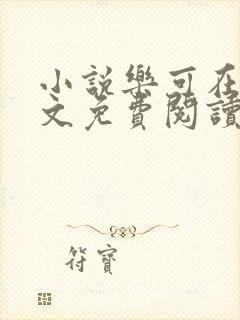 小說樂可在
文免費閱讀
符寶